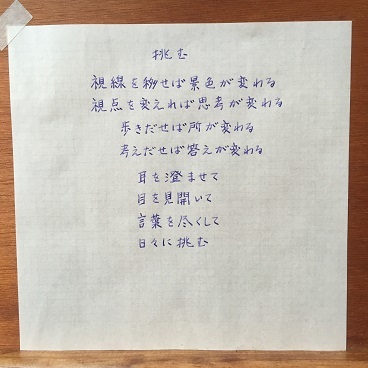 挑む
視線を移せば景色が変わる
視点を変えれば思考が変わる
歩きだせば所が変わる
考えだせば答えが変わる
耳を澄ませて
目を見開いて
言葉を尽くして
日々に挑む